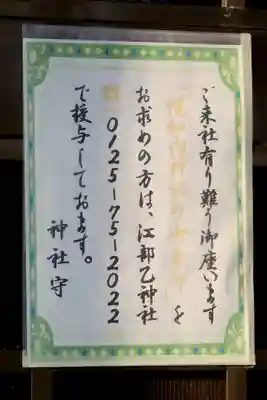 ご来社有り難う御座います
を
お求めの方は、江部乙神社
0125-75-2022
で授与しております。
神社守